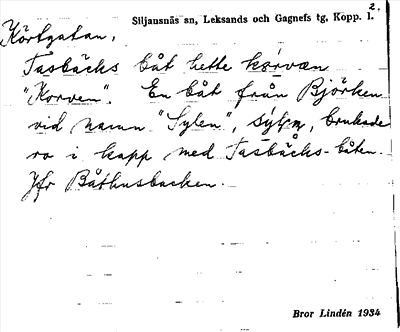 2.
Siljansnäs sn, Leksands och Gagnefs tg, Kopp. l.
Körtgatan.
Tasbäcks båt hette kórvæn
"Korven". En båt från Björken
vid namn "Sylen", brukade
ro i kapp med Tasbäcks-båten.
Jfr Båthusbacken.
Bror Lindén 1934